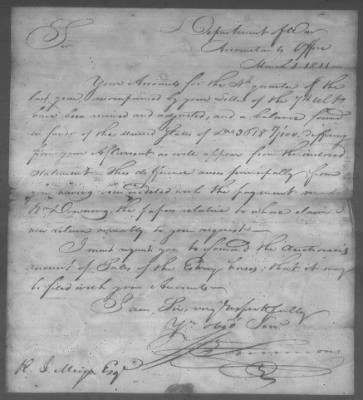 Department of War
Accountants Office
March 1. 1811
Sir
Your Accounts for the 4th quarter of the
last year, accompanied by your letter of the 7th ulto
have been revised and adjusted, and a balance found
in favor of the United States of differing
from your Acct Current as will appear from the inclosed
Statement - this difference arises principally from
your having been credited with the payment
Downing, the papers relative to whose claim
now return agreeably to your request -
I must request you to forward the Auctioneers
account of Sales of the Public horses; that it may
be filed with your Accounts -
I am, Sir, very respectfully
Yr obed Servt
R. J. Meigs Esqr